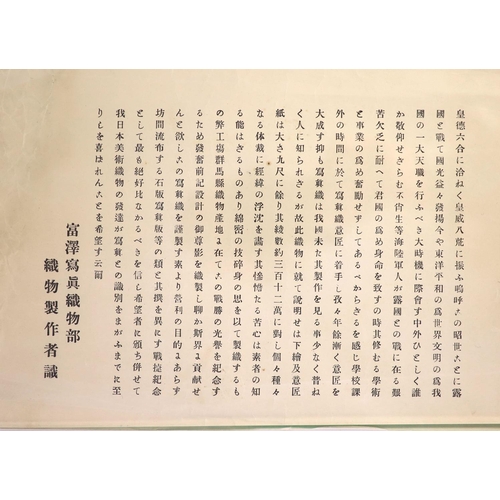 皇德六合に洽ねく皇威八荒に振ふ嗚呼この昭世ことに露
國と戰て國光益々發揚今や東洋平和の爲世界文明の爲我
國の一大天職を行ふべき大時機に際會す中外ひとしく誰
か敬仰せざらむ不肖生等海陸軍人が露國との戰に在る艱
苦欠乏に耐へて君國の爲め身命を致すの時其修むる學術
と事業の爲め奮勵せずしてあるべからざるを感じ學校課
外の時間に於て寫眞織意匠に着手し夜々年餘漸く意匠を
大成す抑も寫眞織は我國未た其製作を見る事少なく普ね
く人に知られざるが故此織物に就て説明せは下繪及意匠
紙は大さ九尺に餘り其綾數約三百十二萬に對し個々種々
なる体裁に經緯の浮沈を畫す其慘憺たる苦心は素者の知
る能はざるものあり綿密の技碎身の思を以て製織するも
の弊工塲群馬縣織物產地に在てこの戰勝の光譽を紀念す
るため發奮前記設計の御尊影を織製し聊か斯界に貢献せ
んと欲しこの寫眞織を謹製す素より營利の目的にあらず
坊間流布する石版寫眞版等の類と其撰を異にす戰捷紀念
として最も絕好なるべきを信し希望者に頒ち併せて
我日本美術織物の發達が寫眞との識別をまがふまでに至
りしを喜ばれんことを希望す云爾
富澤寫眞織物部
織物製作者識